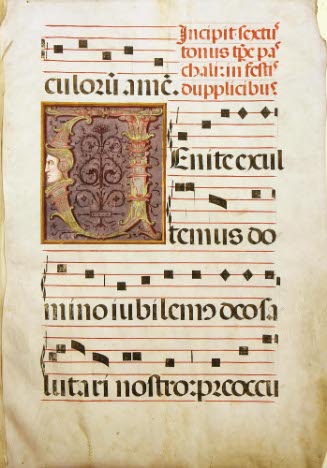 Incipit sextu⁹
tonus tp̄e pa
chali: in festi⁹
dupplicibus
culorū amē.
VEnite exul
temus do
mino iubilem⁹ deo sa
lutari nostro: preoccu